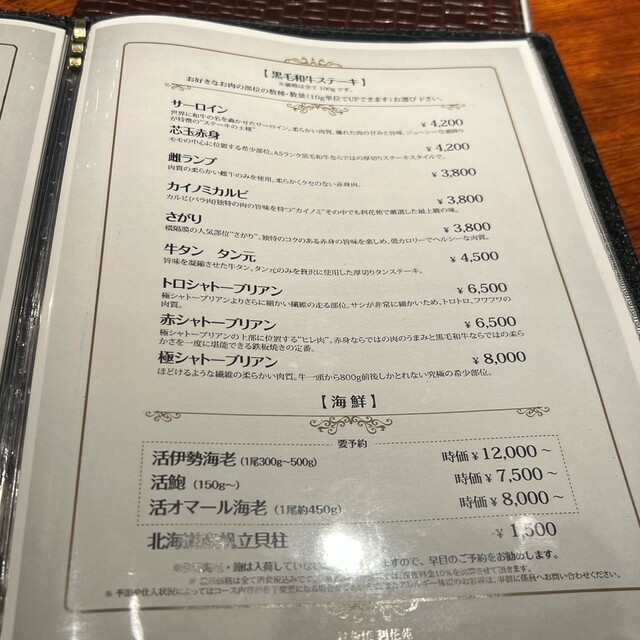 【黒毛和牛ステーキ】
※価格は全て 100g です。
お好きなお肉の部位の数種・数量(10g単位でUPできます)お選び下さい。
サーロイン
世界に和牛の名を轟かせたサーロイン。柔らかい肉質、優れた肉の甘みと旨味、ジューシーな歯触り
が特徴の"ステーキの王様"
¥4,200
芯玉赤身
モモの中心に位置する希少部位。A5ランク黒毛和牛ならではの厚切りステーキスタイルで。
¥4,200
雌ランプ
肉質の柔らかい雌牛のみを使用。柔らかくクセのない赤身肉。
¥3,800
カイノミカルビ
カルビ(バラ肉)独特の肉の旨味を持つ"カイノミ"その中でも利花苑で厳選した最上級の味。
¥3,800
さがり
横隔膜の人気部位"さがり"。独特のコクのある赤身の旨味を楽しめ、低カロリーでヘルシーな肉質。
¥3,800
牛タン タン元
旨味を凝縮させた牛タン。タン元のみを贅沢に使用した厚切りタンステーキ。
¥4,500
トロシャトーブリアン
¥6,500
極シャトーブリアンよりさらに細かい繊維の走る部位。サシが非常に細かいため、トロトロ、フワフワの
肉質。
赤シャトーブリアン
¥6,500
極シャトーブリアンの上部に位置する"ヒレ肉"。赤身ならではの肉のうまみと黒毛和牛ならではの柔ら
かさを一度に堪能できる鉄板焼きの定番。
極シャトーブリアン
¥8,000
ほどけるような繊維の柔らかい肉質。牛一頭から800g前後しかとれない究極の希少部位。
【海鮮】
要予約
活伊勢海老(1尾300g~500g) 時価¥12,000~
活鮑(150g~) 時価¥7,500~
活オマール海老(1尾約450g) 時価¥8,000~
北海道産帆立貝柱 ¥1,500
鮑は入荷していない
ますので、早目のご予約をお勧めします。
表示価格は全て消費税込みです。
深夜料金10%を頂戴させて頂きます。
※ 季節や仕入状況によってはコース内容が若干変更になる場合
アレルギー体質のお客様は、事前に係員へお問い合わせください。